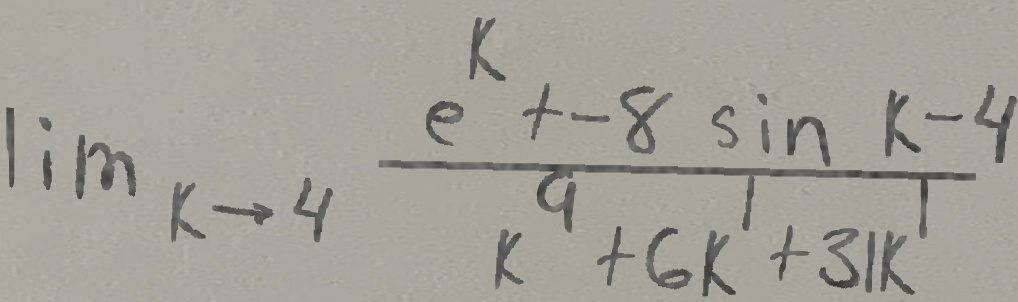 lim_{K→4} \frac{e^K + -8 sin K-4}{K^9 + 6K^1 + 31K^1}